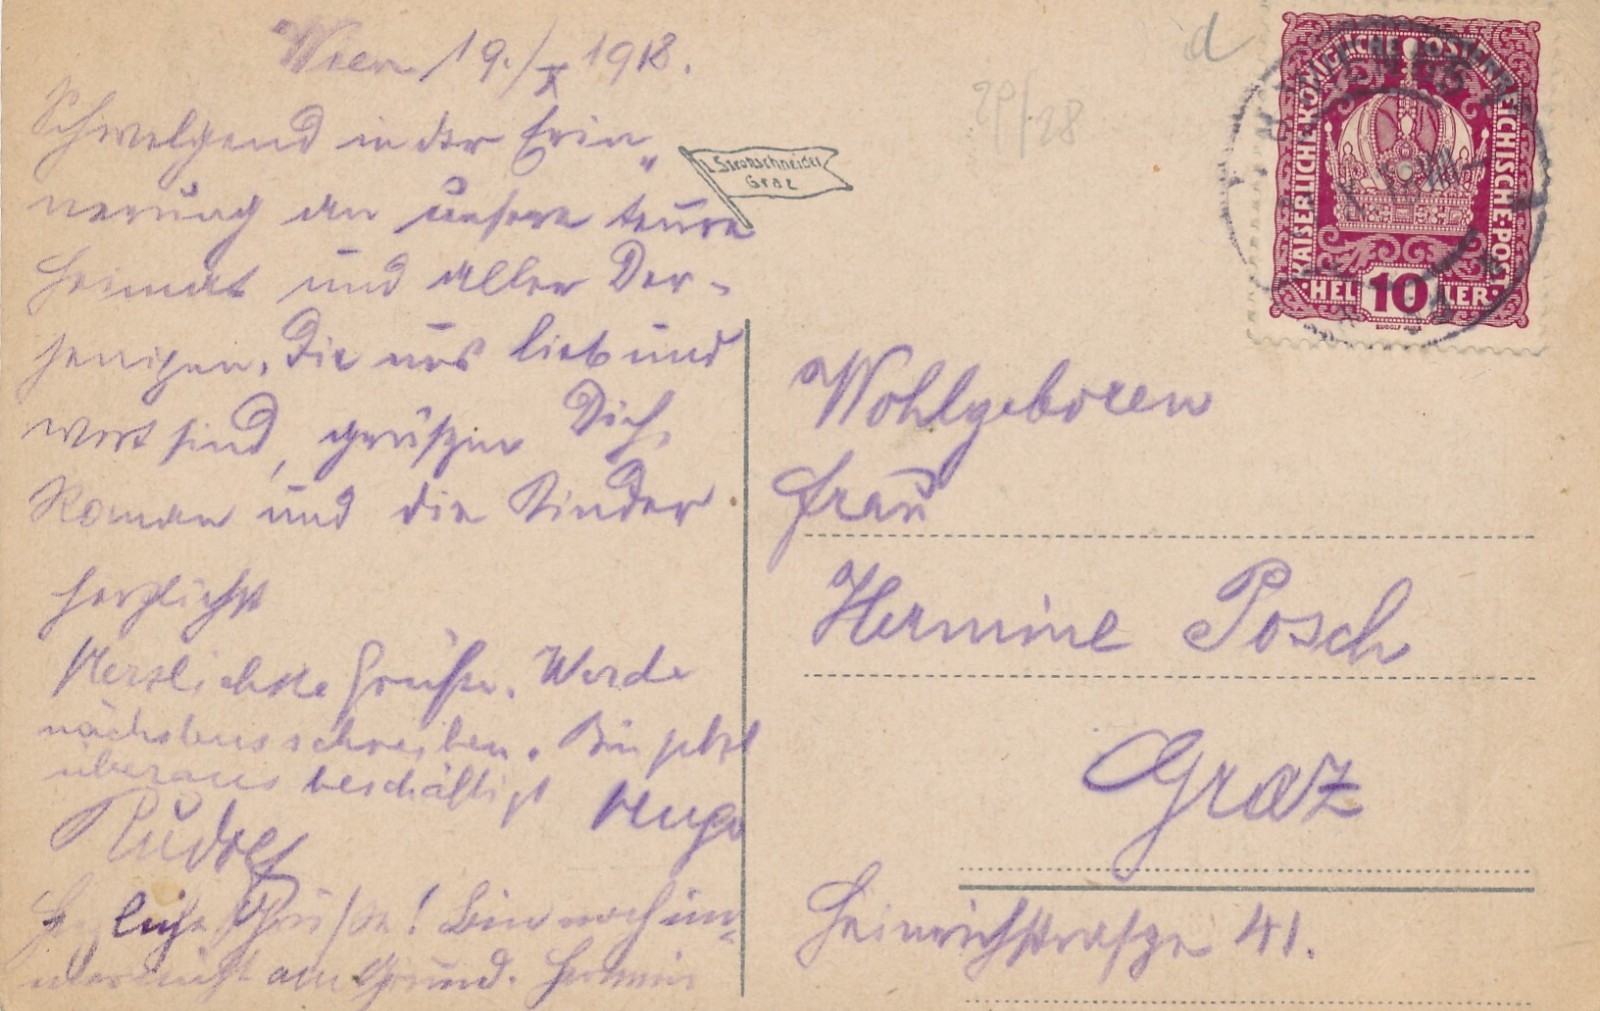 Wien 19./X 1918.
Schwelgend in der Erin„
nerung an unsere teure
Heimat und aller Der-
jenigen, die uns lieb und
wert sind, grüßen Dich,
Roman und die Kinder
herzlichst
Herzlichste Grüße. Werde
nächstens schreiben. Bin jetzt
überaus beschäftigt Hugo
Rudolf
Herzliche Grüße! Bin noch im-
mer nicht am Grund. Hermin
Strohschneider
Graz
29/28
d
KAISERLICHE KÖNIGLICHE ÖSTERREICHISCHE POST
HELLER
10
Wohlgeboren
Frau
Hermine Posch
Graz
Heinrichstraße 41.